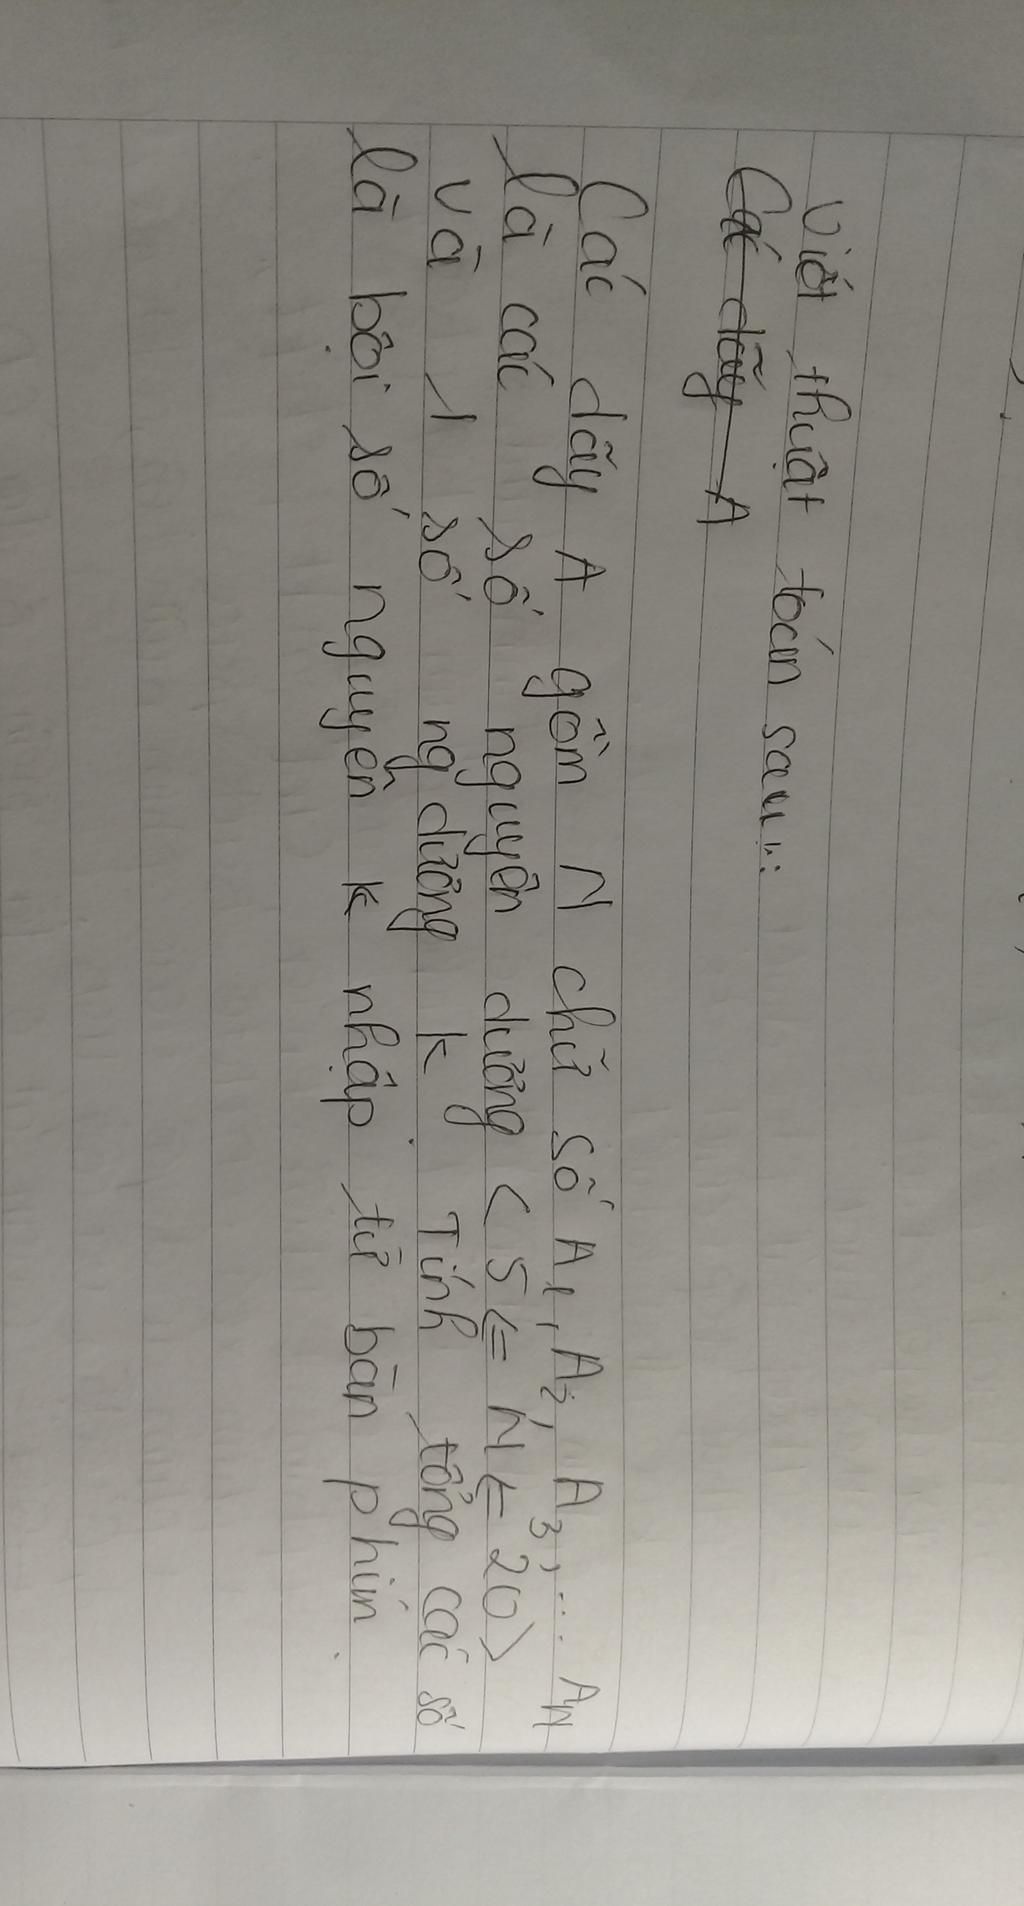 Viết thuật toán sau:
Các dãy A
Các dãy A gồm N chữ số A1, A2, A3,... AN
là các số nguyên dương < 5 <= N <= 20 >
Và 1 số ng dương k Tính tổng các số
là bội số nguyên k nhập từ bàn phím.